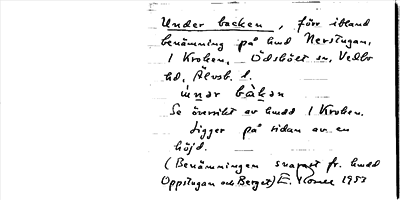 Under backen, förr ibland
benämning på hmd Nerstugan,
1 Kroken, Ödsköls sn, Vedbo
hd, Älvsb. l.
ùnər bàkən
Se översikt av hmdd 1 Kroken.
Ligger på sidan av en
höjd.
(Benämningen snarast fr. hmdd
Oppstugan och Berget) E. 1953